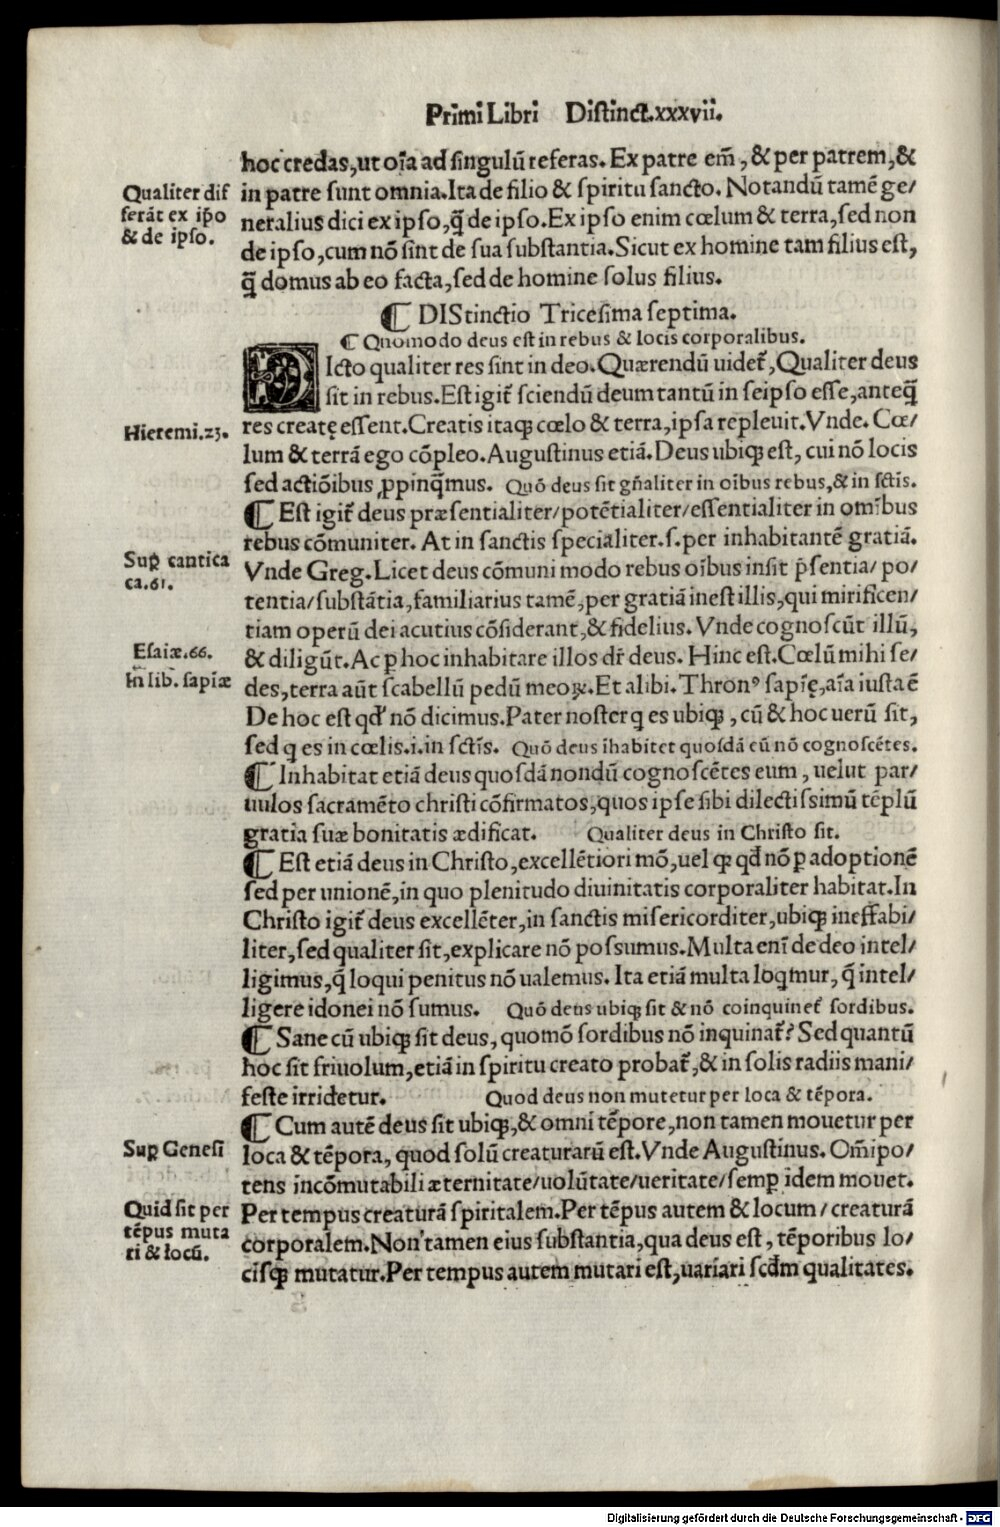 Primi Libri Distinct.xxxvii.
hoc credas,ut oīa ad singulū referas. Ex patre em̄, & per patrem,&
Qualiter dif
ferāt ex ip̄o
& de ipso.
in patre sunt omnia. Ita de filio & spiritu sancto. Notandū tamē ge/
neralius dici ex ipso,q̄ de ipso. Ex ipso enim cœlum & terra, sed non
de ipso,cum nō sint de sua substantia. Sicut ex homine tam filius est,
q̄ domus ab eo facta, sed de homine solus filius.
¶ DIStinctio Tricesima septima.
¶ Quomodo deus est in rebus & locis corporalibus.
DIcto qualiter res sint in deo. Quærendū uidet᷑, Qualiter deus
sit in rebus. Est igit᷑ sciendū deum tantū in seipso esse, anteq̄
Hieremi.23.
res creatę essent. Creatis itaqꝫ cœlo & terra, ipsa repleuit. Vnde. Cœ/
lum & terrā ego cōpleo. Augustinus etiā. Deus ubiqꝫ est, cui nō locis
sed actiōibus ꝓpinq̄mus. Quō deus sit gn̄aliter in oībus rebus,& in sctīs.
¶ Est igit᷑ deus præsentialiter/potētialiter/essentialiter in omībus
rebus cōmuniter. At in sanctis specialiter.s.per inhabitantē gratiā.
Suꝑ cantica
ca.61.
Vnde Greg. Licet deus cōmuni modo rebus oībus insit p̄sentia/ po/
tentia/substātia, familiarius tamē, per gratiā inest illis, qui mirificen/
tiam operū dei acutius cōsiderant,& fidelius. Vnde cognoscūt illū,
Esaiæ.66.
& diligūt. Ac ꝑ hoc inhabitare illos dr̄ deus. Hinc est. Cœlū mihi se/
In lib. sapīæ
des,terra aūt scabellū pedū meoꝝ. Et alibi. Thronꝰ sapīę, aīa iusta ē
De hoc est qđ nō dicimus. Pater noster q es ubiqꝫ, cū & hoc uerū sit,
sed q es in cœlis.i.in sctīs. Quō deus īhabitet quosdā eū nō cognoscētes.
¶ Inhabitat etiā deus quosdā nondū cognoscētes eum, uelut par/
uulos sacramēto christi cōfirmatos,quos ipse sibi dilectissimū tēplū
gratia suæ bonitatis ædificat. Qualiter deus in Christo sit.
¶ Est etiā deus in Christo, excellētiori mō, uel qꝫ qđ nō ꝑ adoptionē
sed per unionē,in quo plenitudo diuinitatis corporaliter habitat. In
Christo igit᷑ deus excellēter,in sanctis misericorditer,ubiqꝫ ineffabi/
liter, sed qualiter sit, explicare nō possumus. Multa enī de deo intel/
ligimus,q̄ loqui penitus nō ualemus. Ita etiā multa loqmur, q̄ intel/
ligere idonei nō sumus. Quō deus ubiqꝫ sit & nō coinquinet᷑ sordibus.
¶ Sane cū ubiqꝫ sit deus, quomō sordibus nō inquinat᷑? Sed quantū
hoc sit friuolum,etiā in spiritu creato probat᷑,& in solis radiis mani/
feste irridetur. Quod deus non mutetur per loca & tēpora.
¶ Cum autē deus sit ubiqꝫ,& omni tēpore,non tamen mouetur per
Suꝑ Genesi
loca & tēpora, quod solū creaturarū est. Vnde Augustinus. Om̄ipo/
tens incōmutabili æternitate/uolūtate/ueritate/semꝑ idem mouet.
Quid sit per
tēpus muta
ri & locū.
Per tempus creaturā spiritalem. Per tēpus autem & locum/ creaturā
corporalem. Non tamen eius substantia,qua deus est, tēporibus lo/
cisqꝫ mutatur. Per tempus autem mutari est,uariari scd̄m qualitates.
Digitalisierung gefördert durch die Deutsche Forschungsgemeinschaft - DFG